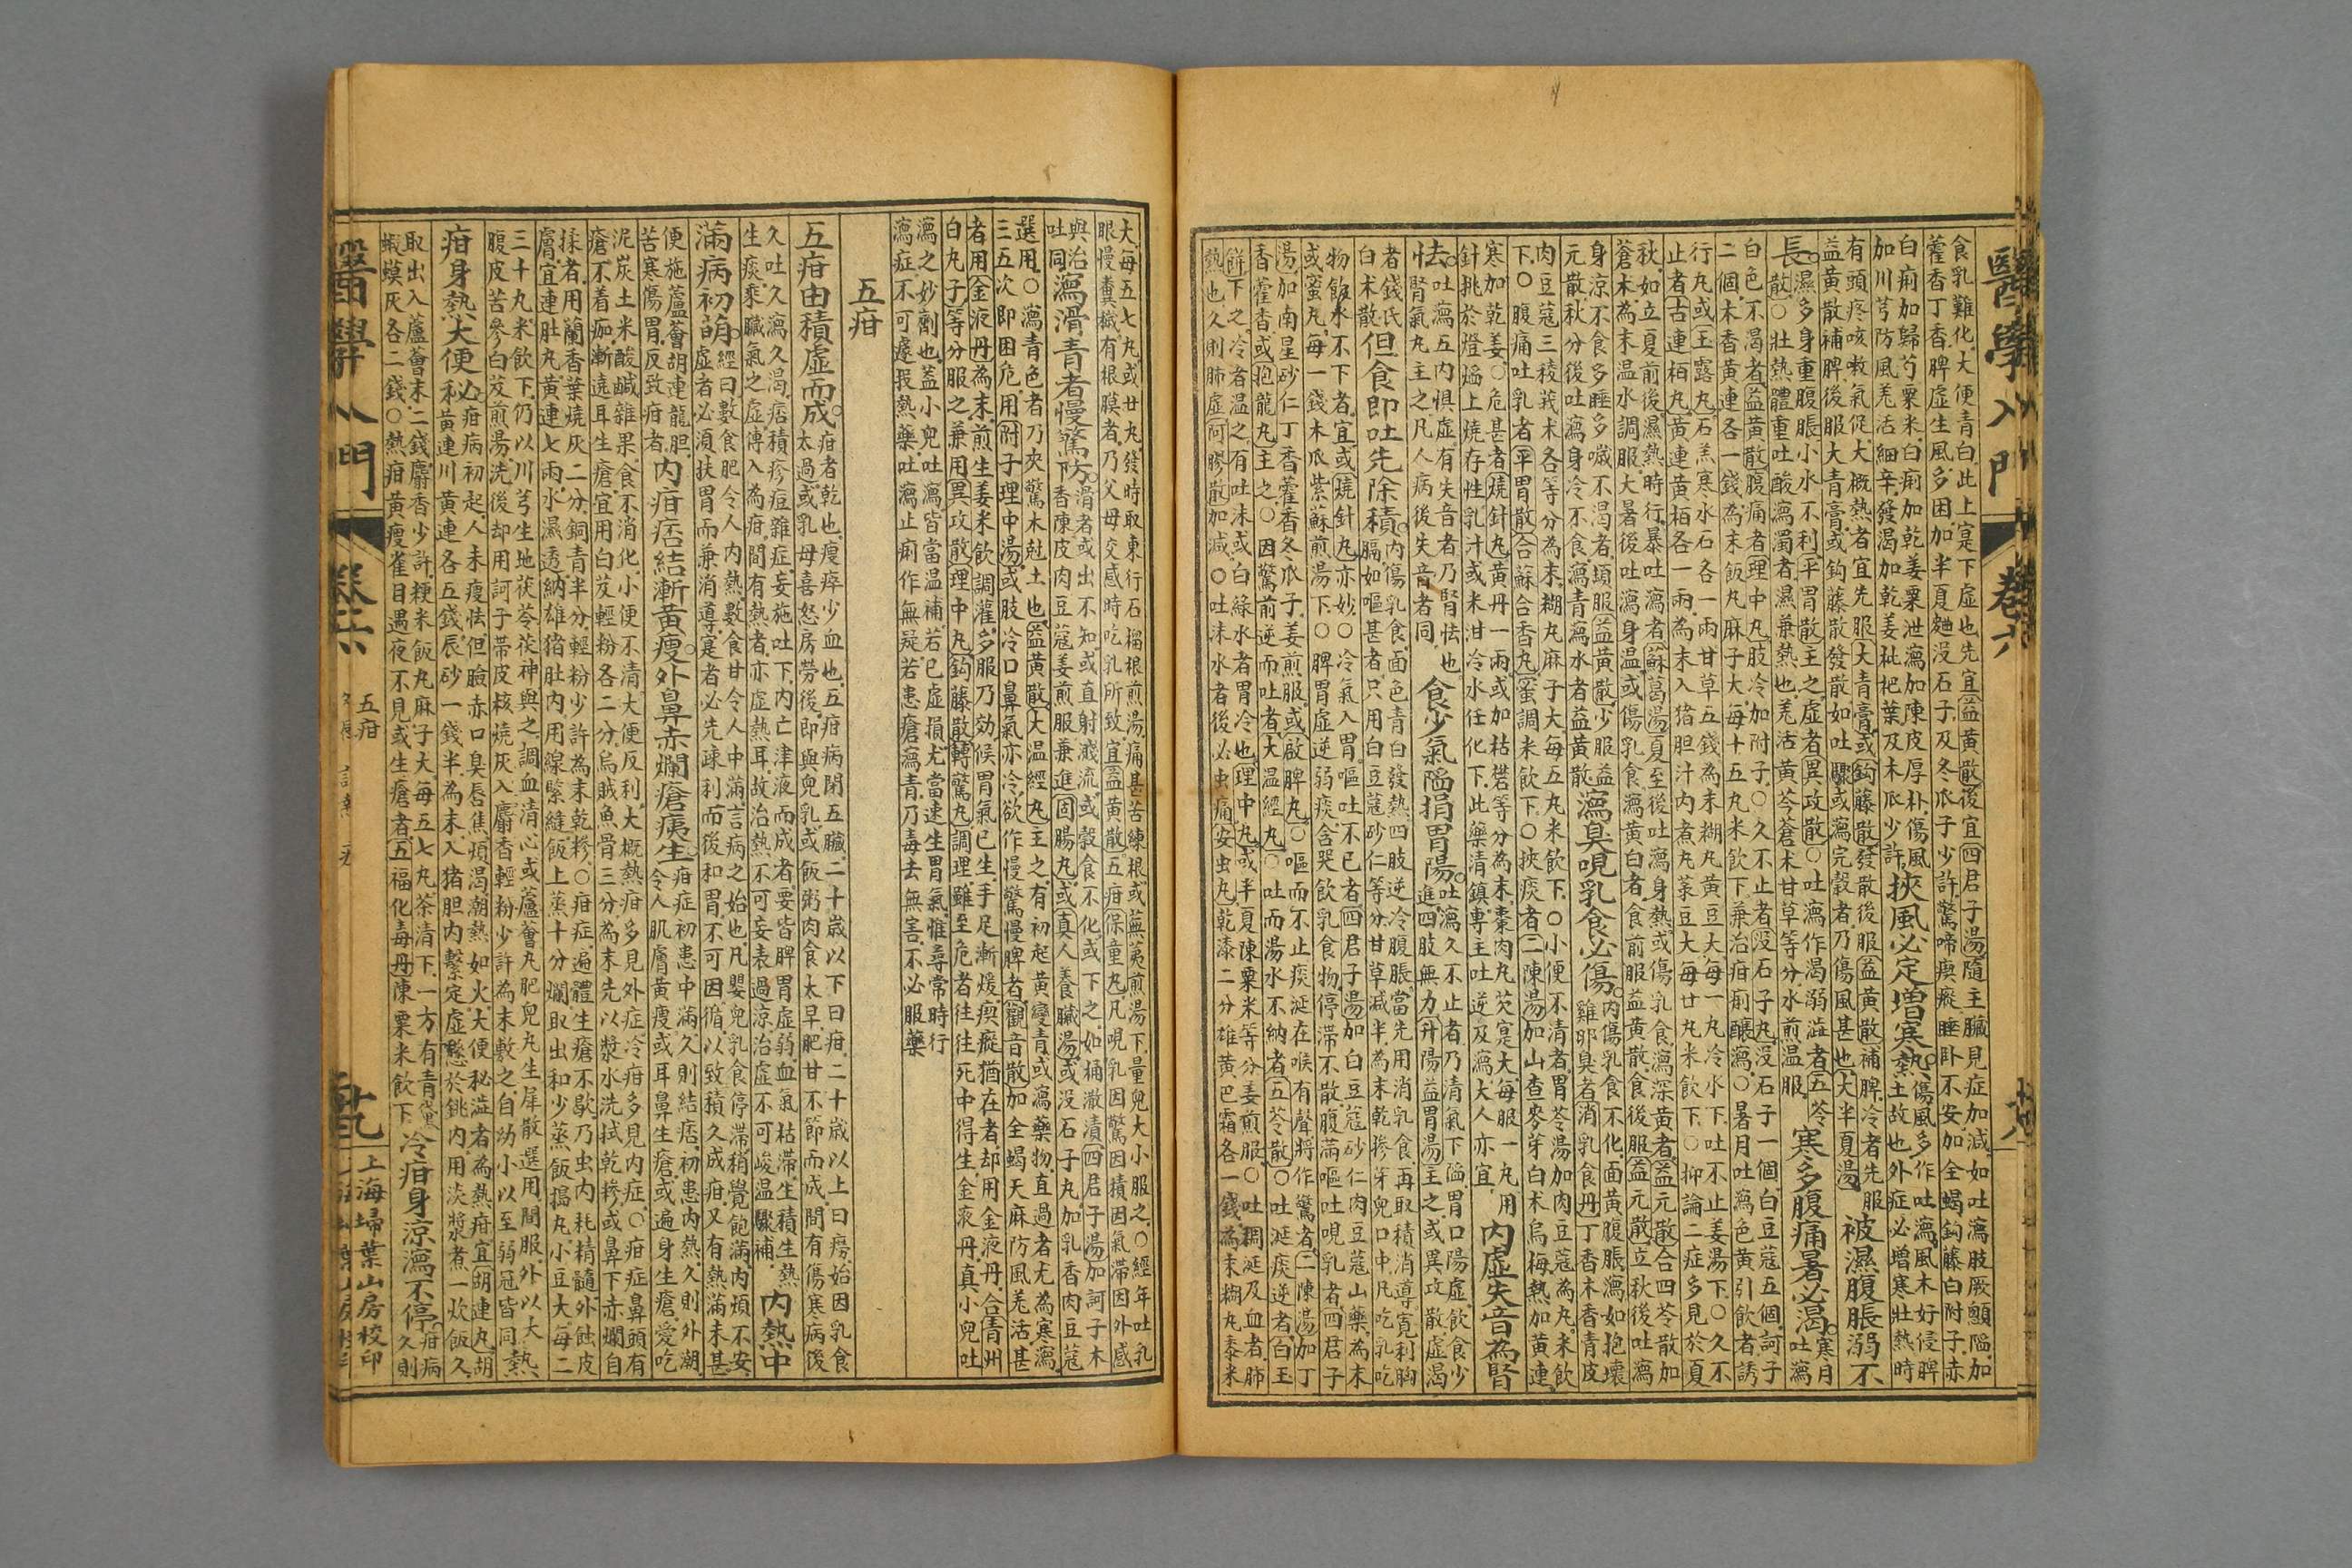 醫學入門 卷六
食乳難化大便青白此上寔下虛也先宜益黃散後宜四君子湯隨主臟見症加減如吐瀉肢厥顖陷加
藿香丁香脾虛生風多困加半夏麯没石子及冬瓜子少許驚啼瘈瘲睡卧不安加全蝎鈎藤白附子赤
白痢加歸芍粟米白痢加乾姜粟泄瀉加陳皮厚朴傷風
加川芎防風羗活細辛發渴加乾姜枇杷葉及木瓜少許
挾風必定增寒熱
傷風多作吐瀉風木好侵脾
土故也外症必增寒壯熱時
有頭疼咳嗽氣促大概熱者宜先服大青膏或鈎藤散發散後服益黃散補脾冷者先服
益黃散補脾後服大青膏或鈎藤散發散如吐驟或瀉完穀者乃傷風甚也大半夏湯
被濕腹脹溺不
長
濕多身重腹脹小水不利平胃散主之虛者異攻散○吐瀉作渴溺澁者五苓
散○壯熱體重吐酸瀉濁者濕兼熱也羗活黃芩蒼术甘草等分水煎温服
寒多腹痛暑必渴
寒月
吐瀉
白色不渴者益黃散腹痛者理中丸肢冷加附子○久不止者没石子丸没石子一個白豆蔻五個訶子
二個木香黃連各一錢為末飯丸麻子大每十五丸米飲下兼治疳痢釀瀉○暑月吐瀉色黃引飲者誘
行丸或玉露丸石羔寒水石各一兩甘草五錢為末糊丸黃豆大每一丸冷水下吐不止姜湯下○久不
止者古連栢丸黃連黃栢各一兩為末入猪胆汁內煮丸菉豆大每廿丸米飲下○抑論二症多見於夏
秋如立夏前後濕熱時行暴吐瀉者蘇葛湯夏至後吐瀉身熱或傷乳食瀉深黃者益元散合四苓散加
蒼术為末温水調服大暑後吐瀉身温或傷乳食瀉黃白者食前服益黃散食後服益元散立秋後吐瀉
身涼不食多睡多嘁不渴者頻服益黃散少服益
元散秋分後吐瀉身冷不食瀉青瀉水者益黃散
瀉臭哯乳食必傷
內傷乳食不化面黃腹脹瀉如抱壞
雞卵臭者消乳食丹丁香木香青皮
肉豆蔻三稜莪术各等分為末糊丸麻子大每五丸米飲下○小便不清者胃苓湯加肉豆蔻為丸米飲
下○腹痛吐乳者平胃散合蘇合香丸蜜調米飲下○挾痰者二陳湯加山查麥芽白术烏梅熱加黃連
寒加乾姜○危甚者燒針丸黃丹一兩或加枯礬等分為末棗肉丸芡寔大每服一丸用
針挑於燈焰上燒存性乳汁或米泔冷水任化下此藥清鎮專主吐逆及瀉大人亦宜
內虛失音為腎
去
吐瀉五內惧虛有失音者乃腎怯也
怯腎氣丸主之凡人病後失音者同
食少氣陷損胃陽
吐瀉久不止者乃清氣下陷胃口陽虛飲食少
進四肢無力升陽益胃湯主之或異攻散虛渴
者錢氏
白术散
但食即吐先除積
內傷乳食面色青白發熱四肢逆冷腹脹當先用消乳食再取積消導寬利胸
膈如嘔甚者只用白豆蔻砂仁等分甘草減半為末乾摻芽兒口中凡吃乳吃
物飯水不下者宜或燒針丸亦妙○冷氣入胃嘔吐不已者四君子湯加白豆蔻砂仁肉豆蔻山藥為末
或蜜丸每一錢木瓜紫蘇煎湯下○脾胃虛逆弱痰含哭飲乳食物停滯不散腹滿嘔吐哯乳者四君子
湯加南星砂仁丁香藿香冬瓜子姜煎服或啟脾丸○嘔而不止痰涎在喉有聲將作驚者二陳湯加丁
香藿香或抱龍丸主之○因驚前逆而吐者大温經丸○吐而湯水不納者五苓散○吐涎痰逆者白玉
餅下之冷者温之有吐沫或白綠水者胃冷也理中丸或半夏陳粟米等分姜煎服○吐稠涎及血者肺
熱也久則肺虛阿膠散加減○吐沫水者後必虫痛安虫丸乾漆二分雄黃巴霜各一錢為末糊丸黍米
大每五七丸或廿丸發時取東行石榴根煎湯痛甚苦練根或蕪荑煎湯下量兒大小服之○經年吐乳
眼慢糞穢有根膜者乃父母交感時吃乳所致宜益黃散五疳保童丸凡哯乳因驚因積因氣滯因外感
與治
吐同
瀉滑青者慢驚防
滑者或出不知或直射濺流或穀食不化或下之如桶澈漬四君子湯加訶子木
香陳皮肉豆蔻姜煎服兼進固腸丸或真人養臟湯或没石子丸加乳香肉豆蔻
選用○瀉青色者乃夾驚木尅土也益黃散大温經丸主之有初起黃變青或瀉藥物直過者尤為寒瀉
三五次即困危用附子理中湯或肢冷口鼻氣亦冷欲作慢驚慢脾者觀音散加全蝎天麻防風羗活甚
者用金液丹為末煎生姜米飲調灌多服乃効候胃氣已生手足漸煖瘈瘲猶在者却用金液丹合青州
白丸子等分服之兼用異攻散理中丸鈎藤散轉驚丸調理雖至危者往往死中得生金液丹真小兒吐
瀉之妙劑也蓋小兒吐瀉皆當温補若已虛損尤當速生胃氣惟尋常時行
瀉症不可遽投熱藥吐瀉止痢作無疑若患瘡瀉青乃毒去無害不必服藥
五疳
五疳由積虛而成
疳者乾也瘦瘁少血也五疳病閉五臟二十歲以下曰疳二十歲以上曰癆始因乳食
太過或乳母喜怒房勞後即與兒乳或飯粥肉食太早肥甘不節而成間有傷寒病後
久吐久瀉久渴痞積疹痘雜症妄施吐下內亡津液而成者要皆脾胃虛弱血氣枯滯生積生熱
生痰乘臟氣之虛傳入為疳間有熱者亦虛熱耳故治熱不可妄表過涼治虛不可峻温驟補
內熱中
滿病初萌
經曰數食肥令人內熱數食甘令人中滿言病之始也凡嬰兒乳食停滯稍覺飽滿內煩不安
虛者必須扶胃而兼消導寔者必先疎利而後和胃不可因循以致積久成疳又有熱滿未甚
便施蘆薈胡連龍胆
苦寒傷胃反致疳者
內疳痞結漸黃瘦外鼻赤爛瘡痍生
疳症初患中滿久則結痞初患內熱久則外潮
令人肌膚黃瘦或耳鼻生瘡或遍身生瘡愛吃
泥炭土米酸鹹雜果食不消化小便不清大便反利大概熱疳多見外症冷疳多見內症○疳症鼻頭有
瘡不着痂漸遶耳生瘡宜用白芨輕粉各二分烏賊魚骨三分為末先以漿水洗拭乾摻或鼻下赤爛自
揉者用蘭香葉燒灰二分銅青半分輕粉少許為末乾摻○疳症遍體生瘡不歇乃虫內耗精髓外蝕皮
膚宜連肚丸黃連七兩水濕透納雄猪肚內用線緊縫飯上蒸十分爛取出和少蒸飯搗丸小豆大每二
三十丸米飲下仍以川芎生地茯苓茯神與之調血清心或蘆薈丸肥兒丸生犀散選用間服外以大熱
腹皮苦參白芨煎湯洗後却用訶子帶皮核燒灰入麝香輕粉少許為末敷之自幼小以至弱冠皆同
疳身熱大便必
疳病初起人未瘦怯但臉赤口臭唇焦煩渴潮熱如火大便秘澁者為熱疳宜胡連丸胡
黃連川黃連各五錢辰砂一錢半為末入猪胆內繫定虛懸於銚內用淡漿煮一炊飯久
取出入蘆薈末二錢麝香少許粳米飯丸麻子大每五七丸茶清下一方有青黛
蝦蟆灰各二錢○熱疳黃瘦雀目遇夜不見或生瘡者五福化毒丹陳粟米飲下
冷疳身涼瀉不停
疳病
久則
醫學入門 卷六
五疳
上海埽葉山房校印